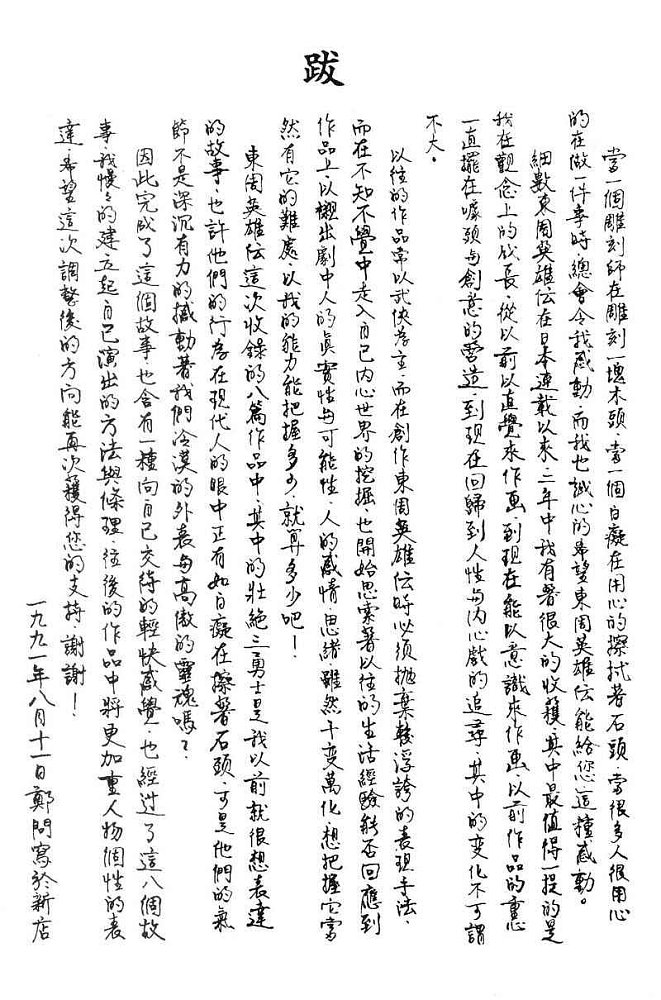 跋
當一個雕刻師在雕刻一塊木頭．當一個白癡在用心的擦拭著石頭．當很多人很用心
的在做一件事時總會令我感動．而我也誠心的希望東周英雄伝能給您這種感動。
細數東周英雄伝在日本連載以來．二年中我有著很大的收獲．其中最值得一提的是
我在觀念上的成長．從以前以直覺來作画．到現在能以意識來作画．以前作品的重心
一直擺在噱頭与創意的營造．到現在回歸到人性与內心戲的追尋．其中的变化不可謂
不大。
以往的作品常以武俠為主．而在創作東周英雄伝時必須拋棄較浮誇的表現手法．
而在不知不覺中走入自己內心世界的挖掘．也開始思索著以往的生活經驗能否回應到
作品上．以襯出劇中人的真實性与可能性．人的感情．思緒．雖然千变萬化．想把握它當
然有它的難處．以我的能力能把握多少．就算多少吧！
東周英雄伝這次收錄的八篇作品中．其中的壯絕三勇士是我以前就很想表達
的故事．也許他們的行為在現代人的眼中正有如白癡在擦著石頭．可是他們的氣
節不是深沉有力的撼動著我們冷漠的外表与高傲的靈魂嗎？
因此完成了這個故事也含有一種向自己交待的輕快感覺．也經过了這八個故
事．我慢々的建立起自己演出的方法與條理．往後的作品中將更加重人物個性的表
達．希望這次調整後的方向能再次獲得您的支持．謝謝！
一九九一年八月十一日鄭問寫於新店